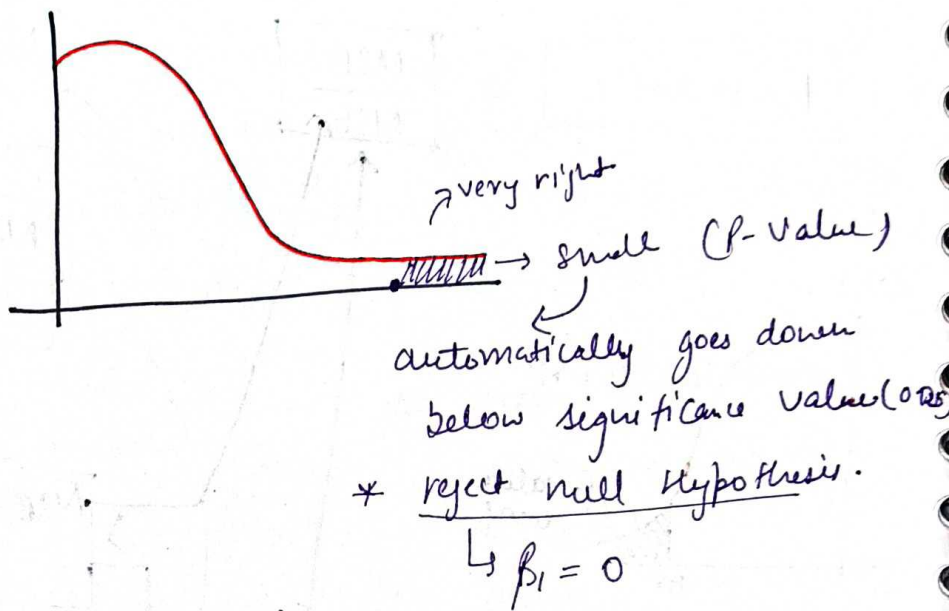 very right
→ small (P-Value)
automatically goes down
below significance value (0.05)
* reject null Hypothesis.
↳ β₁ = 0